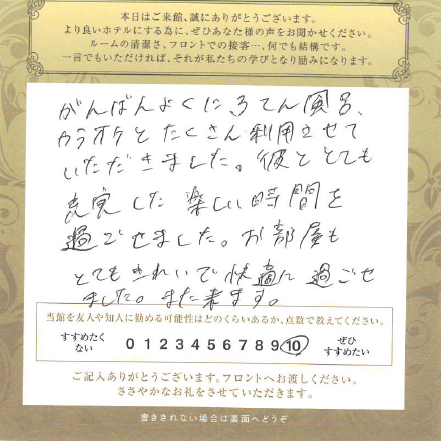 本日はご来館、誠にありがとうございます。
より良いホテルにする為に、ぜひあなた様の声をお聞かせください。
ルームの清潔さ、フロントでの接客…、何でも結構です。
一言でもいただければ、それが私たちの学びとなり励みになります。
がんばんよくに、ろてん風呂、
カラオケとたくさん利用させて
いただきました。彼ととても
充実した楽しい時間を
過ごせました。お部屋も
とてもきれいで快適に過ごせ
ました。また来ます。
当館を友人や知人に勧める可能性はどのくらいあるか、点数で教えてください。
すすめたく
ない
0 1 2 3 4 5 6 7 8 9 10
ぜひ
すすめたい
ご記入ありがとうございます。フロントへお渡しください。
ささやかなお礼をさせていただきます。
書ききれない場合は裏面へどうぞ